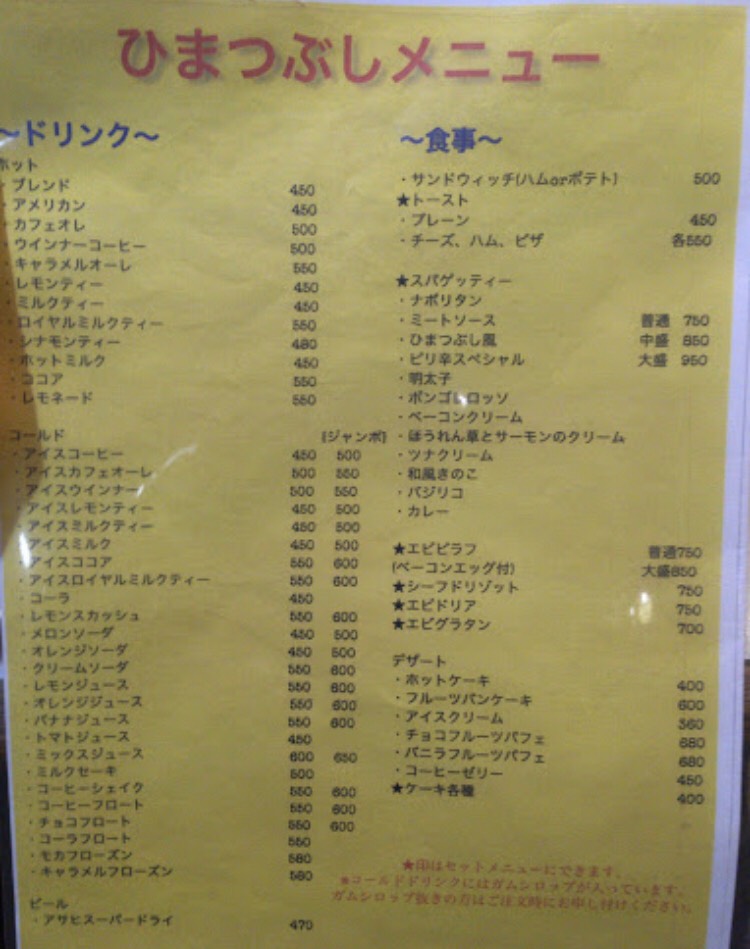 ひまつぶしメニュー
～ドリンク～
ホット
・ブレンド 450
・アメリカン 450
・カフェオレ 500
・ウインナーコーヒー 500
・キャラメルオーレ 550
・レモンティー 450
・ミルクティー 450
・ロイヤルミルクティー 550
・シナモンティー 480
・ホットミルク 450
・ココア 550
・レモネード 550
コールド [ジャンボ]
・アイスコーヒー 450 500
・アイスカフェオーレ 500 550
・アイスウインナー 500 550
・アイスレモンティー 450 500
・アイスミルクティー 450 500
・アイスミルク 450 500
・アイスココア 550 600
・アイスロイヤルミルクティー 550 600
・コーラ 450
・レモンスカッシュ 550 600
・メロンソーダ 450 500
・オレンジソーダ 450 500
・クリームソーダ 550 600
・レモンジュース 550 600
・オレンジジュース 550 600
・バナナジュース 550 600
・トマトジュース 450
・ミックスジュース 600 650
・ミルクセーキ 500
・コーヒーシェイク 550 600
・コーヒーフロート 550 600
・チョコフロート 550 600
・コーラフロート 550
・モカフローズン 580
・キャラメルフローズン 580
ビール
・アサヒスーパードライ 470
～食事～
・サンドウィッチ(ハムorポテト) 500
★トースト
・プレーン 450
・チーズ、ハム、ピザ 各550
★スパゲッティー
・ナポリタン
・ミートソース 普通 750
・ひまつぶし風 中盛 850
・ピリ辛スペシャル 大盛 950
・明太子
・ボンゴレロッソ
・ベーコンクリーム
・ほうれん草とサーモンのクリーム
・ツナクリーム
・和風きのこ
・バジリコ
・カレー
★エビピラフ 普通750
(ベーコンエッグ付) 大盛850
★シーフドリゾット 750
★エビドリア 750
★エビグラタン 700
デザート
・ホットケーキ 400
・フルーツパンケーキ 600
・アイスクリーム 360
・チョコフルーツパフェ 680
・バニラフルーツパフェ 680
・コーヒーゼリー 450
★ケーキ各種 400
★印はセットメニューにできます。
★コールドドリンクにはガムシロップが入っています。
ガムシロップ抜きの方はご注文時にお申し付けください。